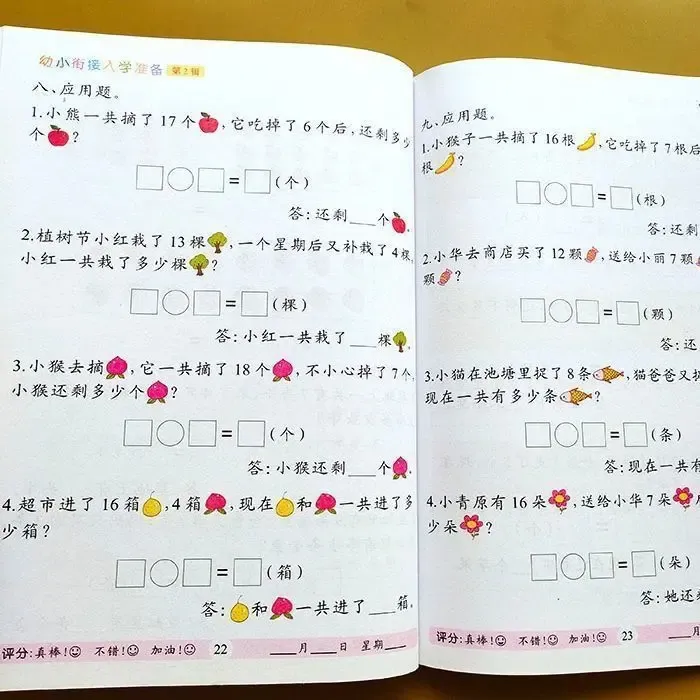 幼小衔接入学准备 第2辑
八、应用题。
1.小熊一共摘了17个,它吃掉了6个后,还剩多少
个?
=(个)
答:还剩___个
2.植树节小红栽了13棵,一个星期后又补栽了4棵,
小红一共栽了多少棵?
=(棵)
答:小红一共栽了___棵
3.小猴去摘,它一共摘了18个,不小心掉了7个,
小猴还剩多少个?
=(个)
答:小猴还剩___个
4.超市进了16箱,4箱,现在和一共进了多
少箱?
=(箱)
答:和一共进了___箱。
评分:真棒! 不错! 加油! 22 ___月___日 星期___
九、应用题。
1.小猴子一共摘了16根,它吃掉了7根后
根?
=(根)
答:还剩
2.小华去商店买了12颗,送给小丽7颗
颗?
=(颗)
答:还
3.小猫在池塘里捉了8条,猫爸爸又
现在一共有多少条?
=(条)
答:现在一共有
4.小青原有16朵,送给小华7朵
少朵?
=(朵)
答:她还
评分:真棒! 不错! 加油! 23 ___月